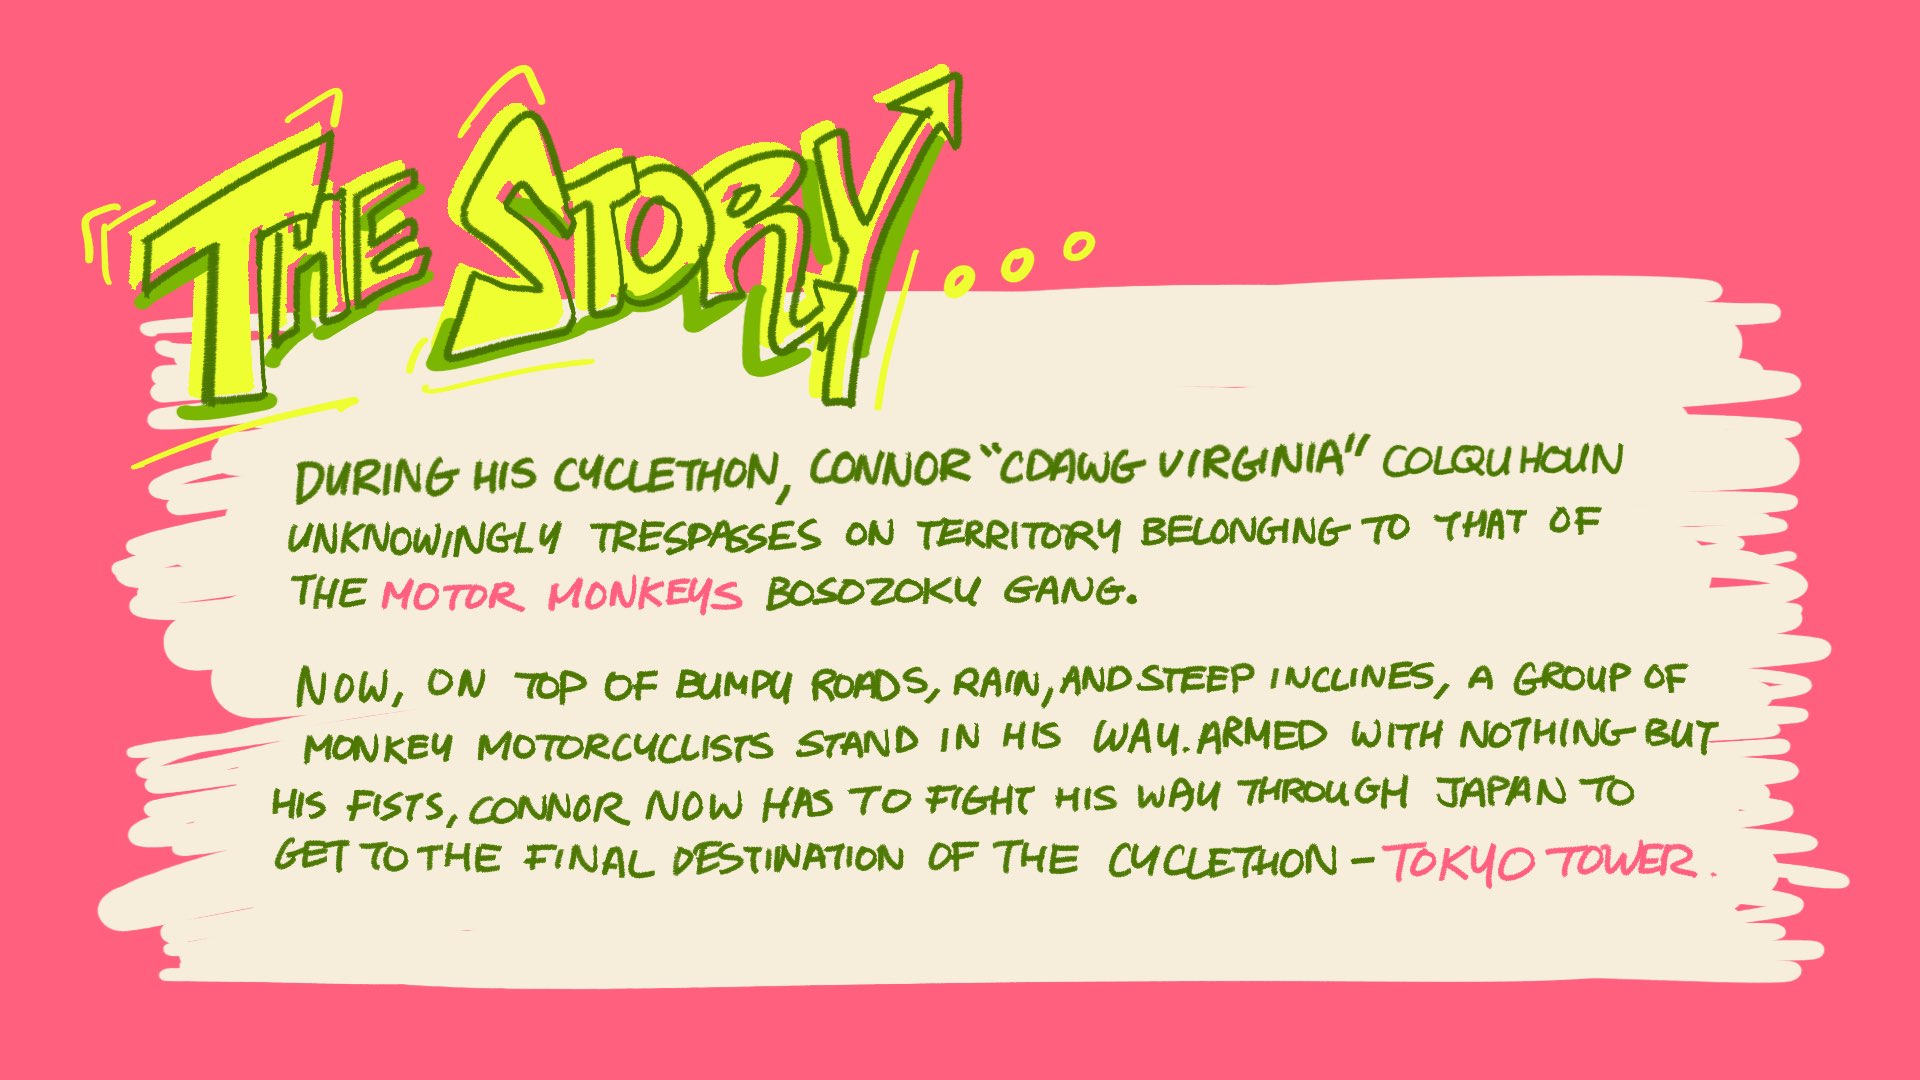 THE STORY...
DURING HIS CYCLETHON, CONNOR "CDAWG VIRGINIA" COLQUHOUN
UNKNOWINGLY TRESPASSES ON TERRITORY BELONGING TO THAT OF
THE MOTOR MONKEYS BOSOZOKU GANG.
NOW, ON TOP OF BUMPY ROADS, RAIN, AND STEEP INCLINES, A GROUP OF
MONKEY MOTORCYCLISTS STAND IN HIS WAY. ARMED WITH NOTHING BUT
HIS FISTS, CONNOR NOW HAS TO FIGHT HIS WAY THROUGH JAPAN TO
GET TO THE FINAL DESTINATION OF THE CYCLETHON - TOKYO TOWER.